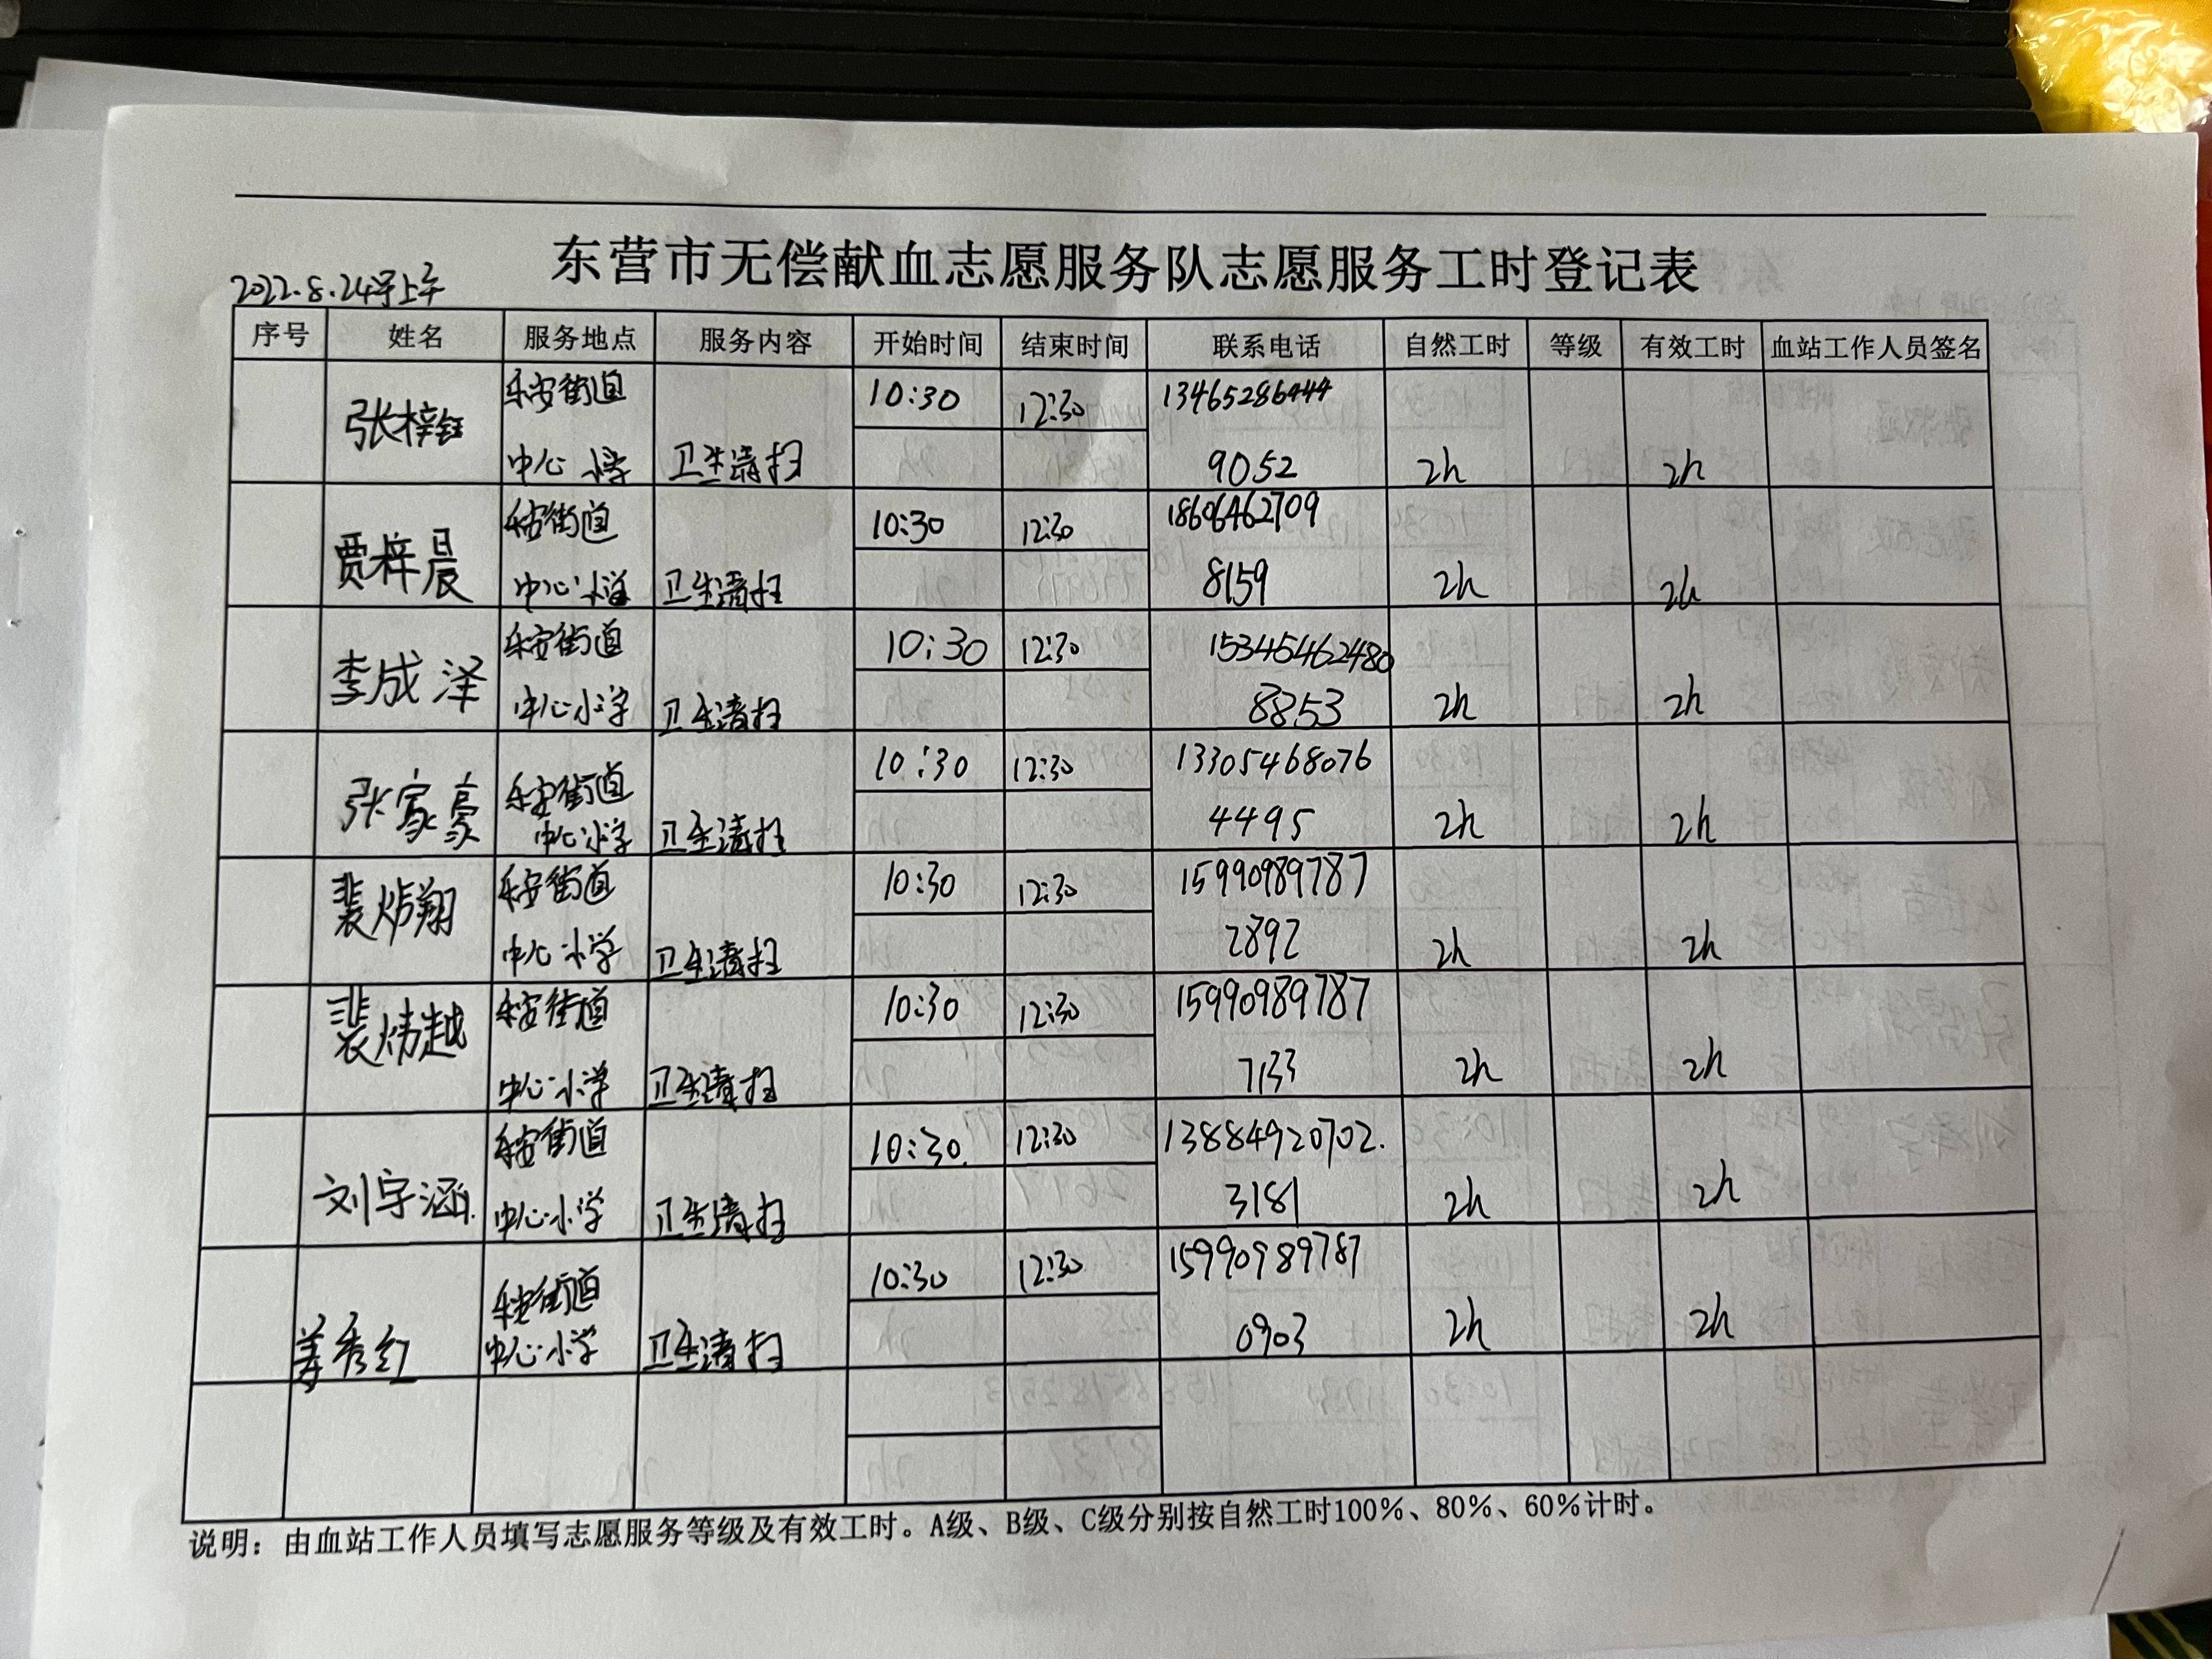 东营市无偿献血志愿服务队志愿服务工时登记表
2022.8.24号上午
序号 姓名 服务地点 服务内容 开始时间 结束时间 联系电话 自然工时 等级 有效工时 血站工作人员签名
乐安街道 10:30 12:30 13465286444
张梓钰 中心小学 卫生清扫 9052 2h 2h
乐安街道 10:30 12:30 18606462709
贾梓晨 中心小学 卫生清扫 8159 2h 2h
乐安街道 10:30 12:30 15345462480
李成泽 中心小学 卫生清扫 8853 2h 2h
乐安街道 10:30 12:30 13305468076
张家豪 中心小学 卫生清扫 4495 2h 2h
乐安街道 10:30 12:30 15990989787
裴炳翔 中心小学 卫生清扫 2892 2h 2h
乐安街道 10:30 12:30 15990989787
裴炜越 中心小学 卫生清扫 7133 2h 2h
乐安街道 10:30. 12:30 13884920702.
刘宇涵. 中心小学 卫生清扫 3181 2h 2h
乐安街道 10:30 12:30 15990989787
姜秀红 中心小学 卫生清扫 0903 2h 2h
说明：由血站工作人员填写志愿服务等级及有效工时。A级、B级、C级分别按自然工时100%、80%、60%计时。